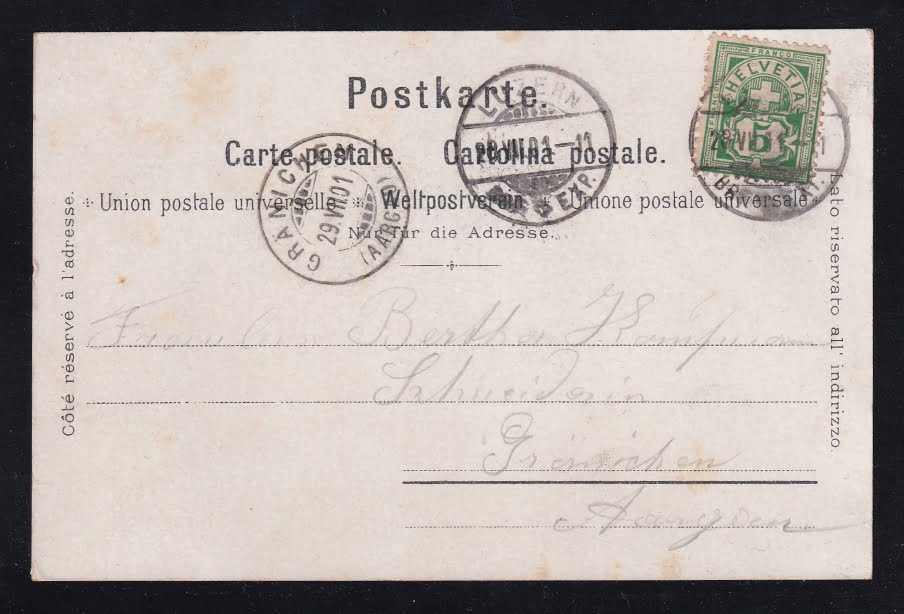 Postkarte.
Carte postale. Cartolina postale.
Union postale universelle * Weltpostverein * Unione postale universale
Nur für die Adresse.
Côté réservé à l'adresse.
Lato riservato all' indirizzo.
FRANCO
HELVETIA
5
LUZERN
28.VII.01-11
EXP.
GRÄNICHEN
29.VII.01
(AARG
28.VII
BR
Fräulein Bertha
Schneiderin
Gränichen
Aargau